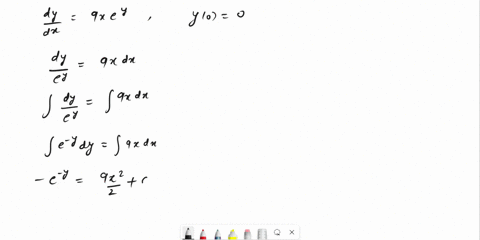 dy/dx = 9x e^y , y(0) = 0
dy/e^y = 9x dx
∫ dy/e^y = ∫ 9x dx
∫ e^-y dy = ∫ 9x dx
- e^-y = 9x^2/2 + c